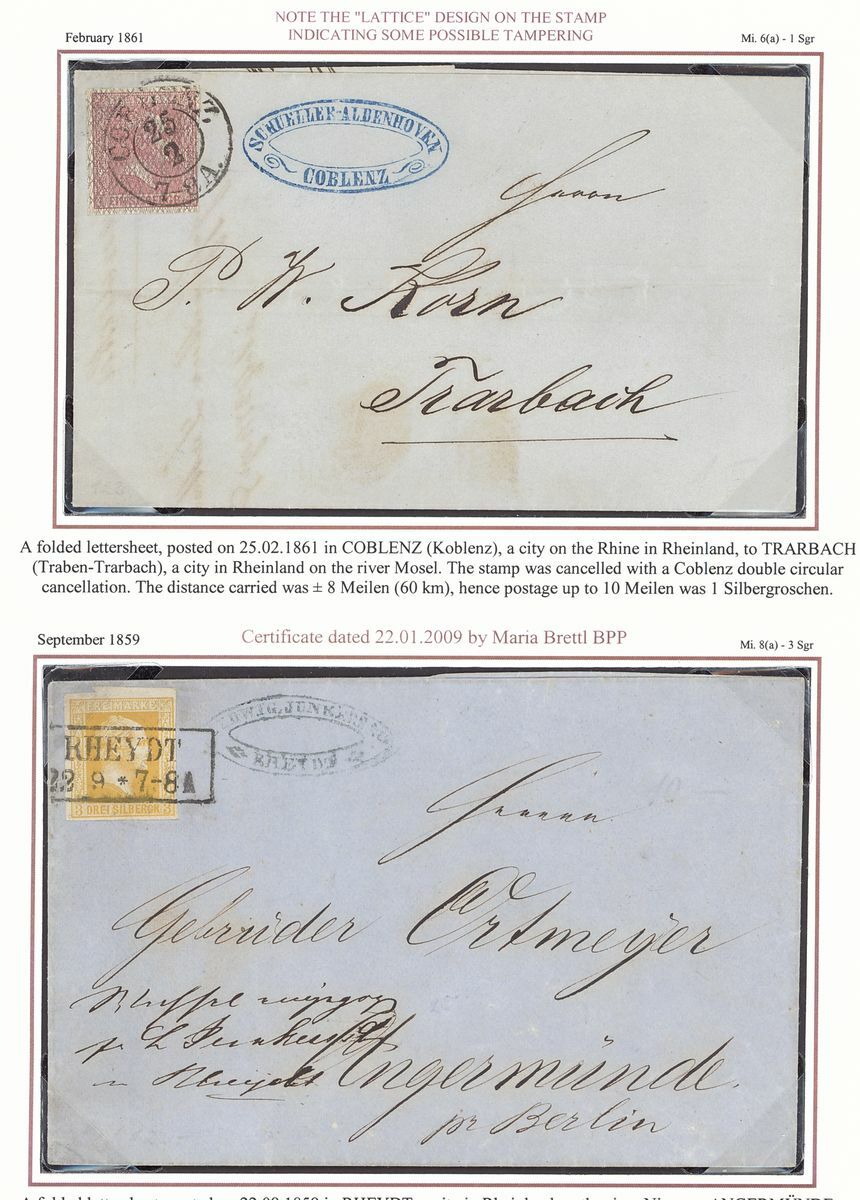 NOTE THE "LATTICE" DESIGN ON THE STAMP
INDICATING SOME POSSIBLE TAMPERING
February 1861
Mi. 6(a) - 1 Sgr
25
2
7-8A.
SCHUELLER-ALDENHOVEN
COBLENZ
Herrn
P. W. Korn
Trarbach
A folded lettersheet, posted on 25.02.1861 in COBLENZ (Koblenz), a city on the Rhine in Rheinland, to TRARBACH
(Traben-Trarbach), a city in Rheinland on the river Mosel. The stamp was cancelled with a Coblenz double circular
cancellation. The distance carried was ± 8 Meilen (60 km), hence postage up to 10 Meilen was 1 Silbergroschen.
September 1859
Certificate dated 22.01.2009 by Maria Brettl BPP
Mi. 8(a) - 3 Sgr
FREIMARKE
RHEYDT
22 9 * 7-8A
3 DREI SILBERGR. 3
RHEYDT
Herren
Gebrüder Ortmeyer
Angermünde.
pr Berlin